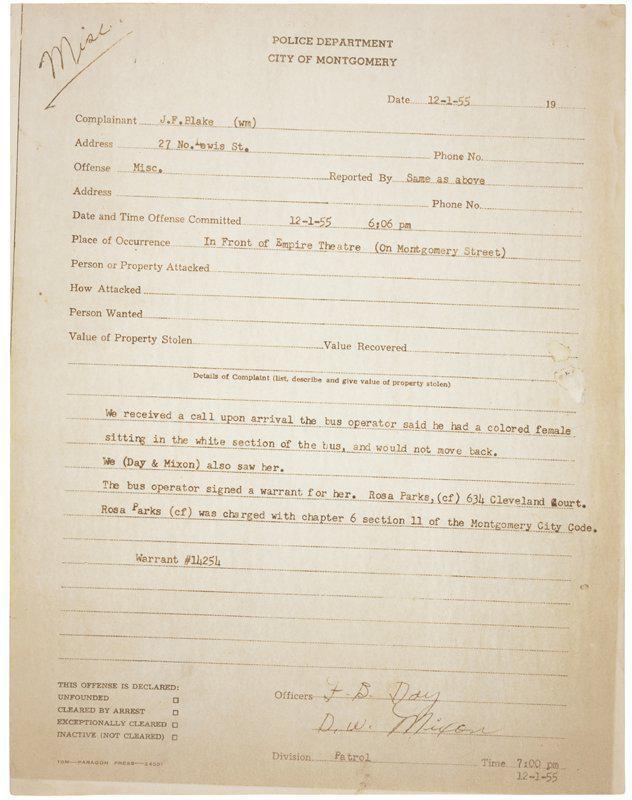 Misc.
POLICE DEPARTMENT
CITY OF MONTGOMERY
Date 12-1-55 19
Complainant J.F.Blake (wm)
Address 27 No.Lewis St.
Phone No.
Offense Misc. Reported By Same as above
Address Phone No.
Date and Time Offense Committed 12-1-55 6:06 pm
Place of Occurrence In Front of Empire Theatre (On Montgomery Street)
Person or Property Attacked
How Attacked
Person Wanted
Value of Property Stolen Value Recovered
Details of Complaint (list, describe and give value of property stolen)
We received a call upon arrival the bus operator said he had a colored female
sitting in the white section of the bus, and would not move back.
We (Day & Mixon) also saw her.
The bus operator signed a warrant for her. Rosa Parks,(cf) 634 Cleveland Court.
Rosa Parks (cf) was charged with chapter 6 section 11 of the Montgomery City Code.
Warrant #14254
THIS OFFENSE IS DECLARED:
UNFOUNDED
CLEARED BY ARREST
EXCEPTIONALLY CLEARED
INACTIVE (NOT CLEARED)
Officers F. B. Day
D. W. Mixon
Division Patrol Time 7:00 pm
12-1-55
10M—PARAGON PRESS—24001